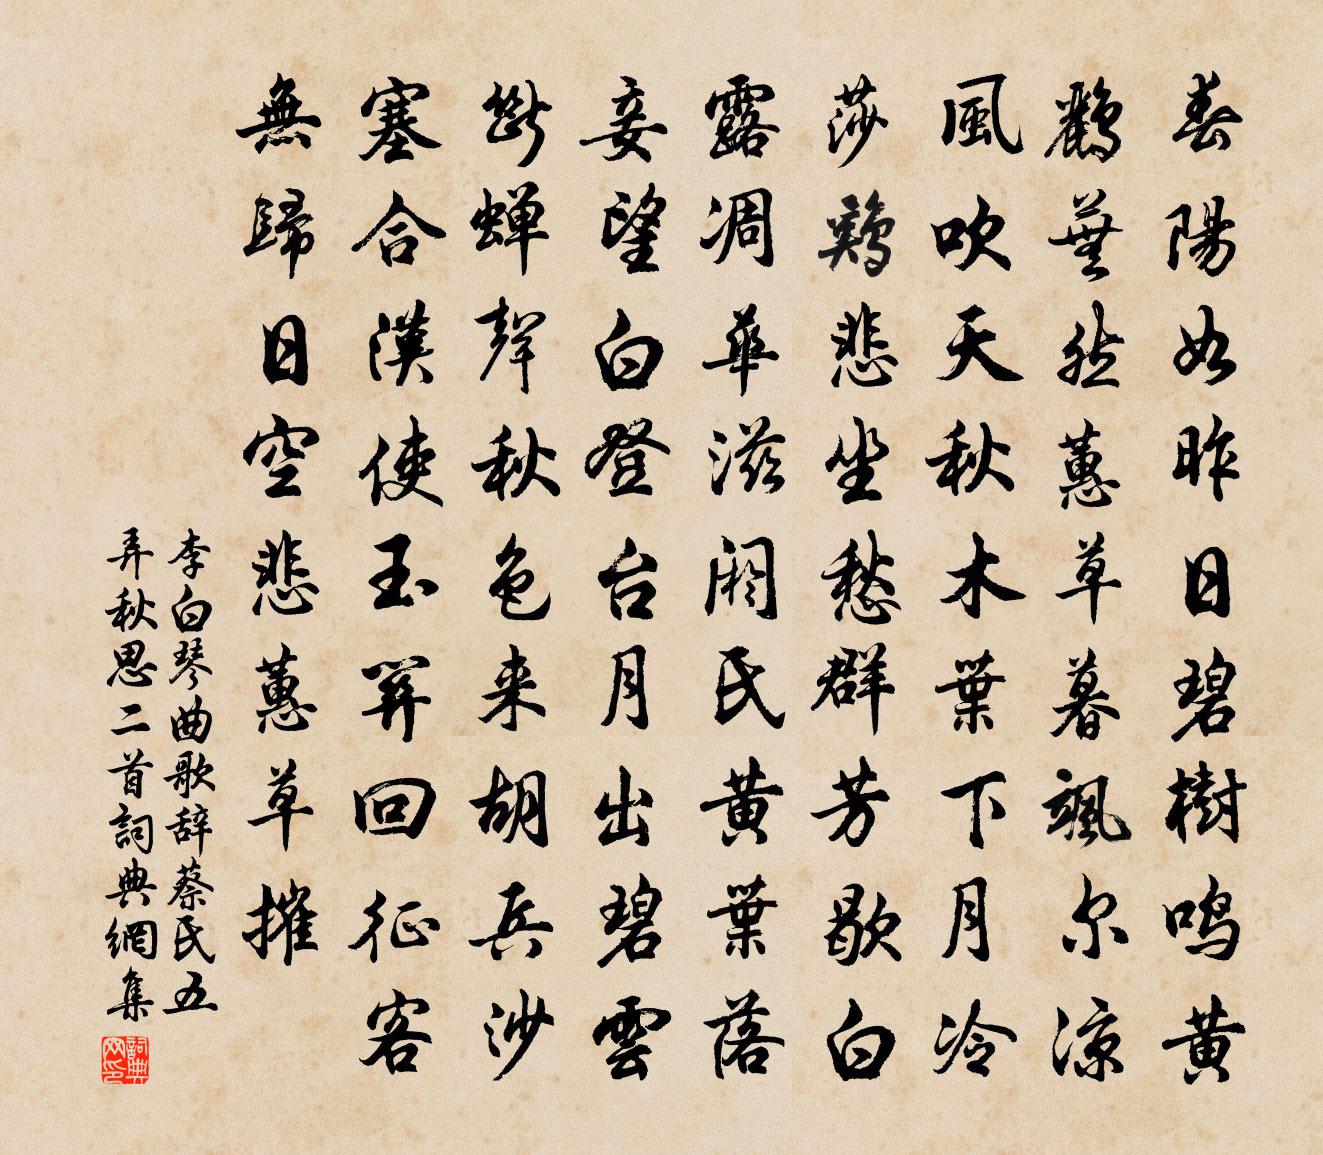 春陽如昨日碧樹鳴黃
鸝蕪然蕙草暮颯尔涼
風吹天秋木葉下月冷
莎鶏悲坐愁群芳歇白
露凋華滋閼氏黃葉落
妾望白登台月出碧雲
斷蟬聲秋色来胡兵沙
塞合漢使玉關回征客
無歸日空悲蕙草摧
李白琴曲歌辞蔡氏五
弄秋思二首詞典網集
詞典
网印